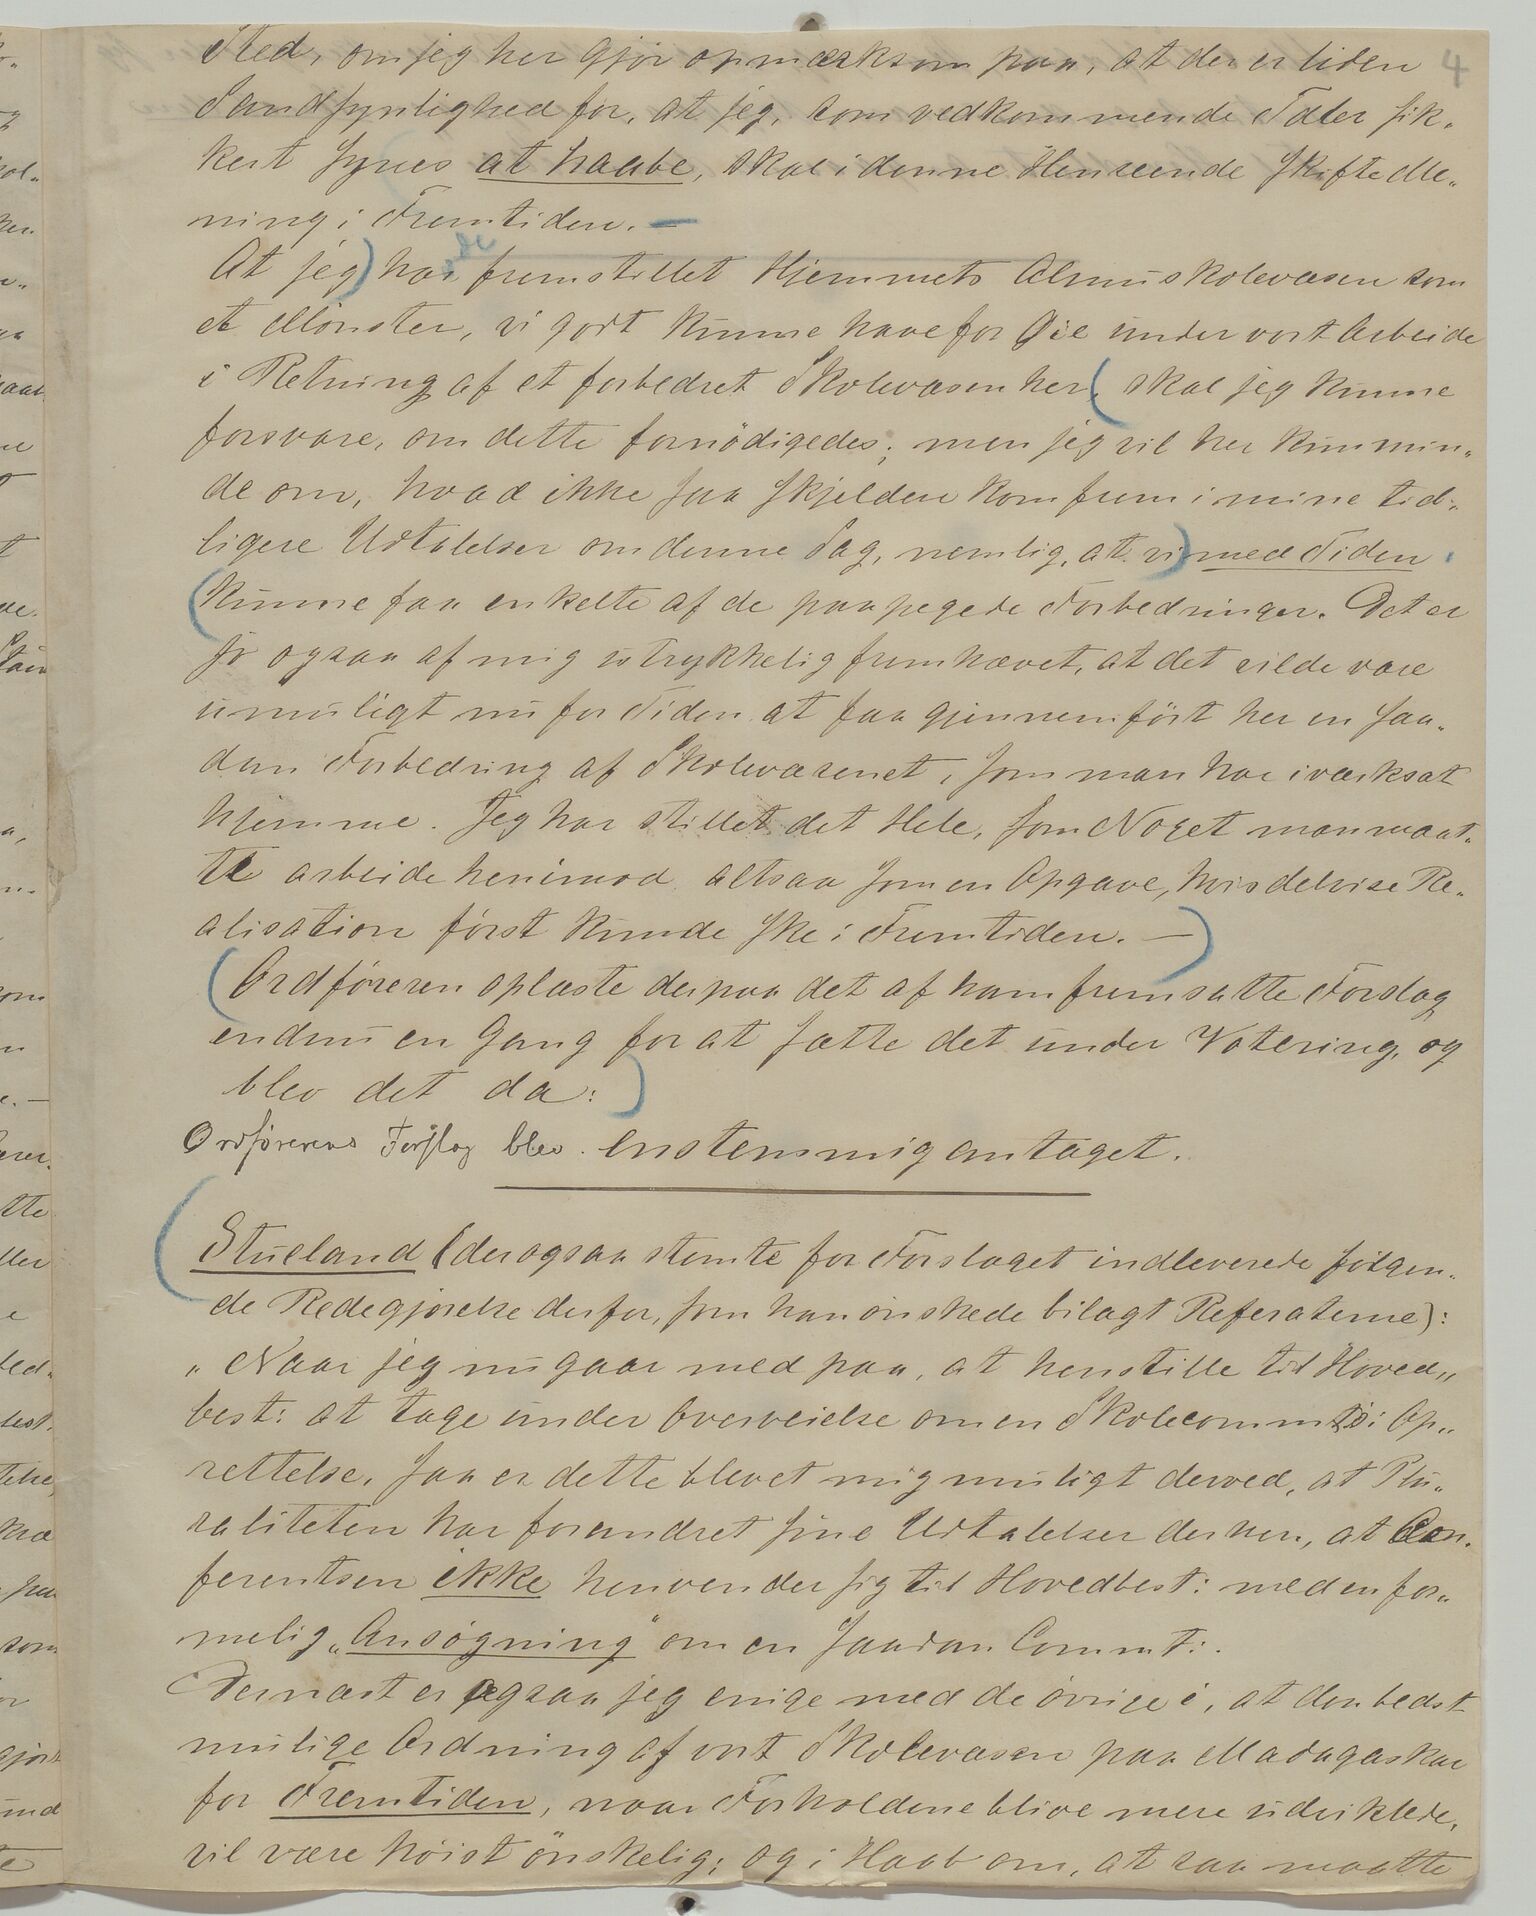 Sted, om jeg her gjør opmærksom paa, at der er liden 4
Sandsynlighed for, at jeg, som vedkommende Taler sik-
kert synes at haabe, skal i denne Henseende skifte Me-
ning i Fremtiden. —
At jeg) har fremstillet Hjemmets Almuskolevæsen som
et Mønster, vi godt kunne have for Øie under vort Arbeide
i Retning af et forbedret Skolevæsen her, (skal jeg kunne
forsvare, om dette fornödigedes; men jeg vil her kun min-
de om, hvad ikke saa skjelden kom frem i mine tid-
ligere Udtalelser om denne Sag, nemlig, at vi) med Tiden
(kunne faa enkelte af de paapegede Forbedringer. Det er
jo ogsaa af mig udtrykkelig fremhævet, at det vilde være
umuligt nu for Tiden at faa gjennemført her en saa-
dan Forbedring af Skolevæsenet, som man har iværksat
hjemme. Jeg har stillet det Hele, som Noget man maat-
te arbeide henimod altsaa som en Opgave, hvis delvise Re-
alisation først kunde ske i Fremtiden. —)
(Ordføreren oplæste derpaa det af ham fremsatte Forslag
endnu en Gang for at sætte det under Votering, og
blev det da:)
Ordførerens Forslag blev enstemmig antaget.
(Stueland (der ogsaa stemte for Forslaget indleverede følgen-
de Redegjørelse derfor, som han ønskede bilagt Referaterne):
„Naar jeg nu gaar med paa, at henstille til Hoved-
best: at tage under Overveielse om en Skolecommts: Op-
rettelse, saa er dette blevet mig muligt derved, at Plu-
raliteten har forandret sine Udtalelser derhen, at Con-
ferentsen ikke henvender sig til Hovedbest: med en for-
melig „Ansøgning" om en saadan Commt:.
Dernæst er ogsaa jeg enige med de øvrige i, at den bedst
mulige Ordning af vort Skolevæsen paa Madagaskar
for Fremtiden, naar Forholdene blive mere udviklede,
vil være høist ønskelig; og i Haab om, at saa maatte